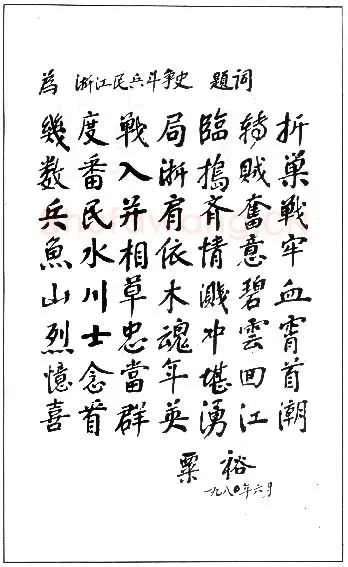 為 浙江民兵斗争史 題词
幾度戰局臨转折
数番入浙搗賊巢
兵民并肩齐奮戰
魚水相依情意牢
山川草木濺碧血
烈士忠魂冲雲霄
憶念當年堪回首
喜看群英湧江潮
粟裕
一九八〇年六月